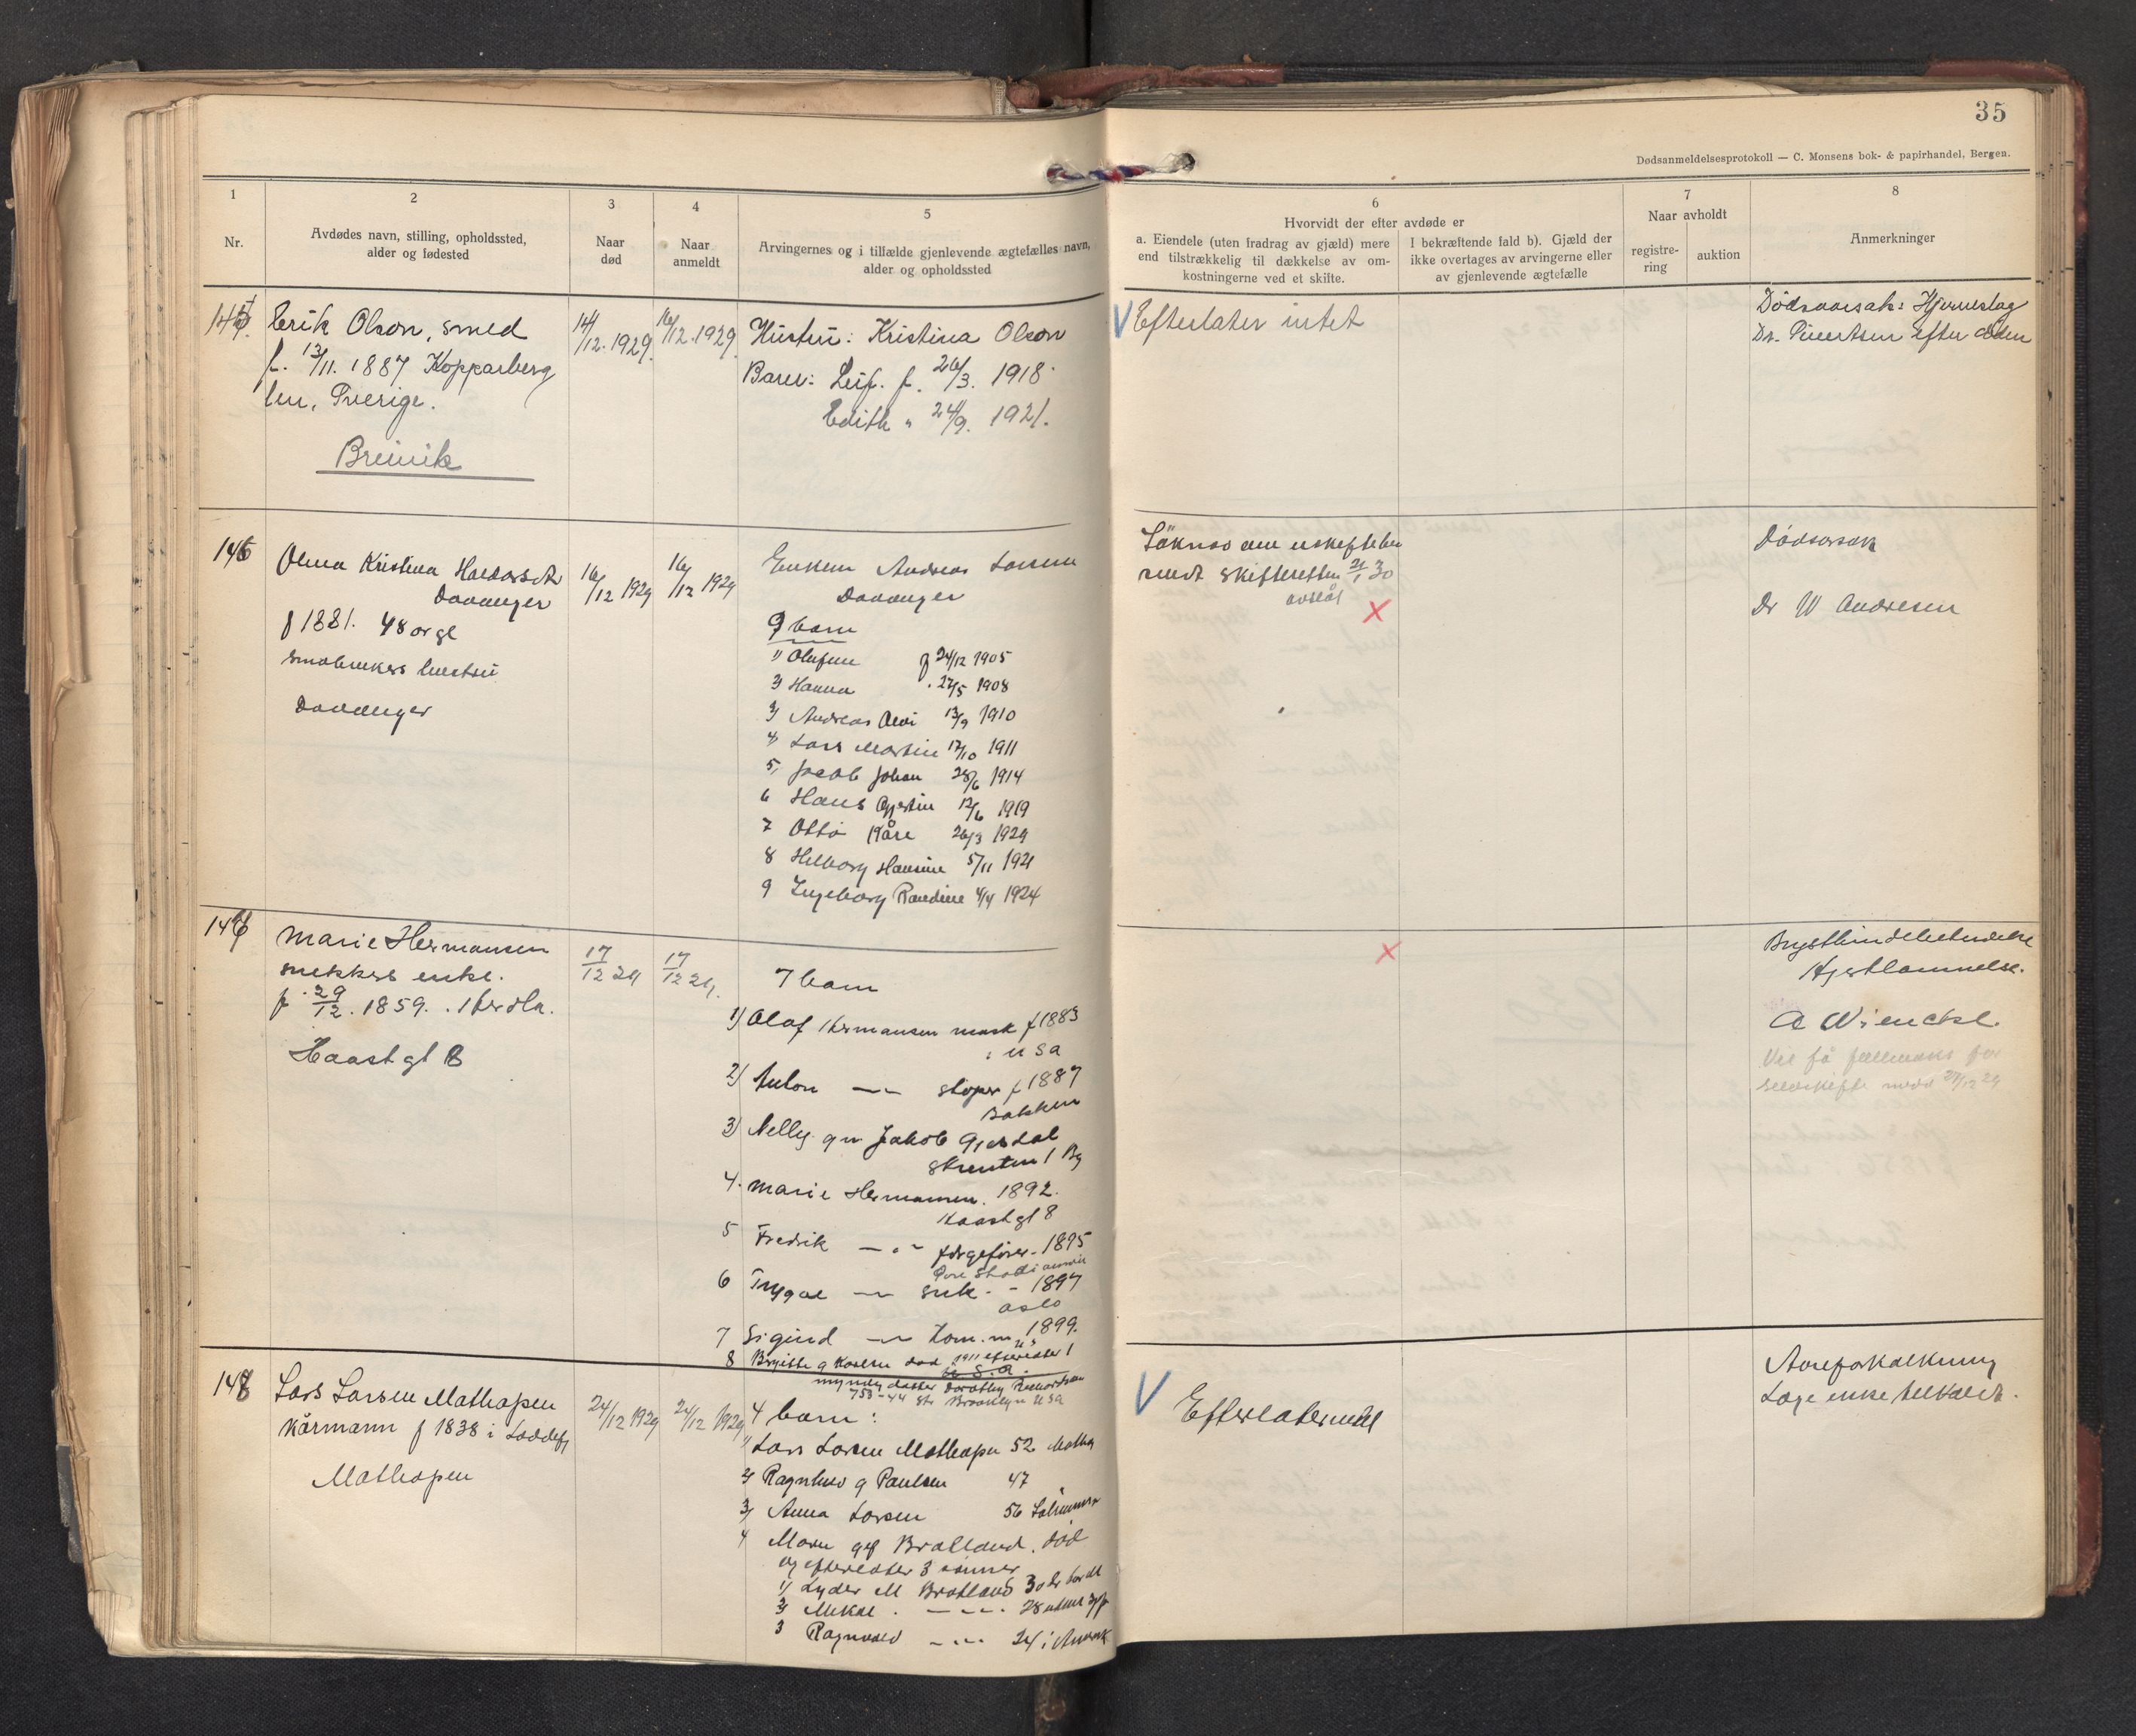 35
Dødsanmeldelsesprotokoll — C. Monsens bok- & papirhandel, Bergen.
1
Nr.
2
Avdødes navn, stilling, opholdssted,
alder og fødested
3
Naar
død
4
Naar
anmeldt
5
Arvingernes og i tilfælde gjenlevende ægtefælles navn,
alder og opholdssted
6
Hvorvidt der efter avdøde er
a. Eiendele (uten fradrag av gjæld) mere
end tilstrækkelig til dækkelse av om-
kostningerne ved et skifte.
I bekræftende fald b). Gjæld der
ikke overtages av arvingerne eller
av gjenlevende ægtefælle
7
Naar avholdt
registre-
ring
auktion
8
Anmerkninger
145
Erik Olson, smed
f. 13/11. 1887 Kopparberg
len, Sverige.
Breivik
14/12. 1929.
16/12. 1929.
Hustru: Kristina Olson
Barn: Leif. f. 26/3. 1918.
Edith " 24/9. 1921.
V Efterlater intet
Dødsaarsak: Hjerneslag
Dr. Sivertsen efter døden
146
Olina Kristina Haldorsdtr
Davanger
f 1881. 48 år gl
småbrukers hustru
Davanger
16/12 1929
16/12 1929
Enkem Andreas Larsen
Davanger
9 barn
1) Olufine f 24/12 1905
2) Hanna . 27/5 1908
3) Andreas Olai 13/9 1910
4) Lars Martin 17/10 1911
5) Jacob Johan 28/6 1914
6 Hans Gjertin 12/6 1919
7 Otto Kåre 26/3 1929
8 Hilborg Hansine 5/11 1921
9 Ingeborg Randine 4/4 1924
Söknad om uskiftebo
sendt skifteretten 21/1 30
avslåt
X
Dødsårsak
Dr W Andresen
147
Marie Hermansen
snekkers enke.
f. 29/12. 1859. Herdla.
Haastgt 8
17/12 29
17/12 29.
7 barn
1) Olaf Hermansen mask f 1883
i U S a
2) Anton —"— støper f 1887
Bakken
3) Nelly g m Jakob Gjerdal
Skrenten 1 Bg
4. Marie Hermansen. 1892.
Haastgt 8
5 Fredrik —"— 1895
6 Trygve —"— snk. - 1897
Oslo
7 Sigurd —"— 1899.
8 Birgitte g Karlsen død 1911 efterlater 1
U. S. a.
myndig datter Dorothy
753 - 44 str Brooklyn USA
X
Brysthindebetendelse
Hjertlammelse.
A Wiencke.
Vil få fullmakt for
selvskifte 27/12 29
148
Lars Larsen Mathopen
Kårmann f 1838 i Loddefj
Mathopen
24/12 1929
24/12 1929
4 barn:
1) Lars Larsen Mathopen 52 Mathop
2) Ragnhild g Paulsen 47
3) Anna Larsen 56
4 Maren gift Bratland. død
og efterlater 3 sønner
1) Lyder M Bratland 30 år
2) Mikal . —"— 28
3 Ragnvald —"— 24 i Amerik
V Efterlater intet
Aareforkalkning
Læge ikke tilkaldt.